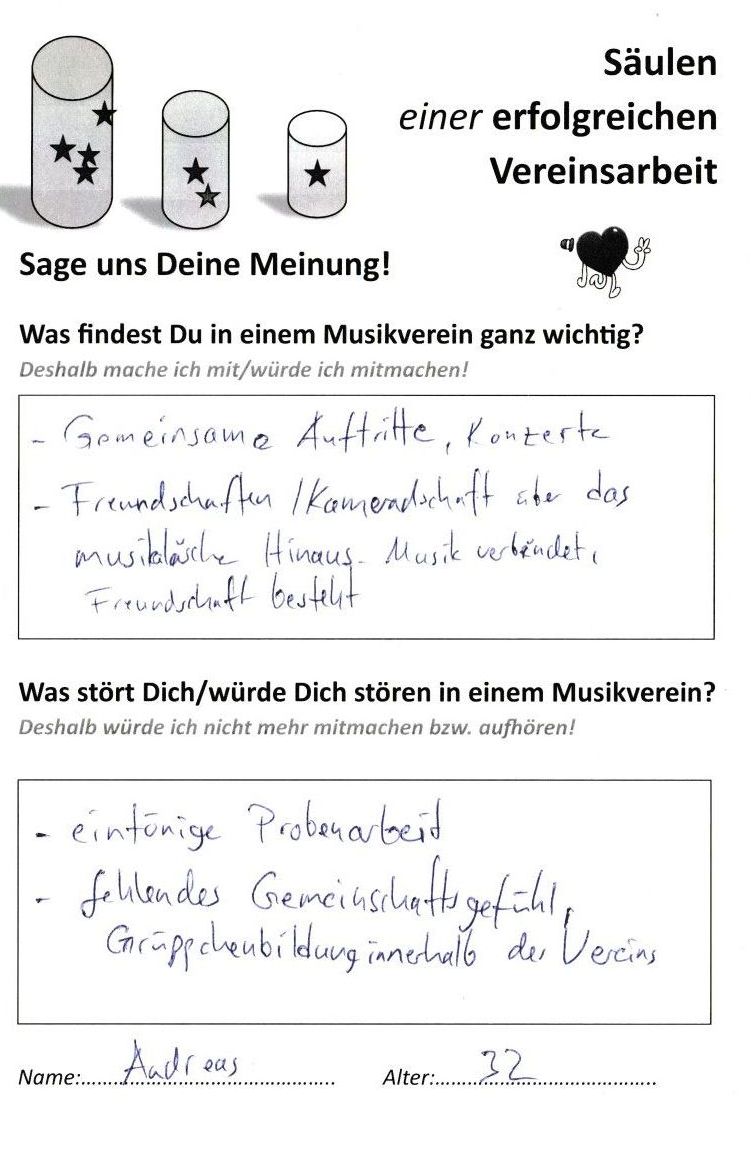 Säulen
einer erfolgreichen
Vereinsarbeit
Sage uns Deine Meinung!
Was findest Du in einem Musikverein ganz wichtig?
Deshalb mache ich mit/würde ich mitmachen!
- Gemeinsame Auftritte, Konzerte
- Freundschaften / Kameradschaft über das
musikaläsche Hinaus. Musik verbindet,
Freundschaft besteht
Was stört Dich/würde Dich stören in einem Musikverein?
Deshalb würde ich nicht mehr mitmachen bzw. aufhören!
- eintönige Probenarbeit
- fehlendes Gemeinschaftsgefühl,
Grüppchenbildung innerhalb des Vereins
Name:..... Andreas ..... Alter:..... 32 .....